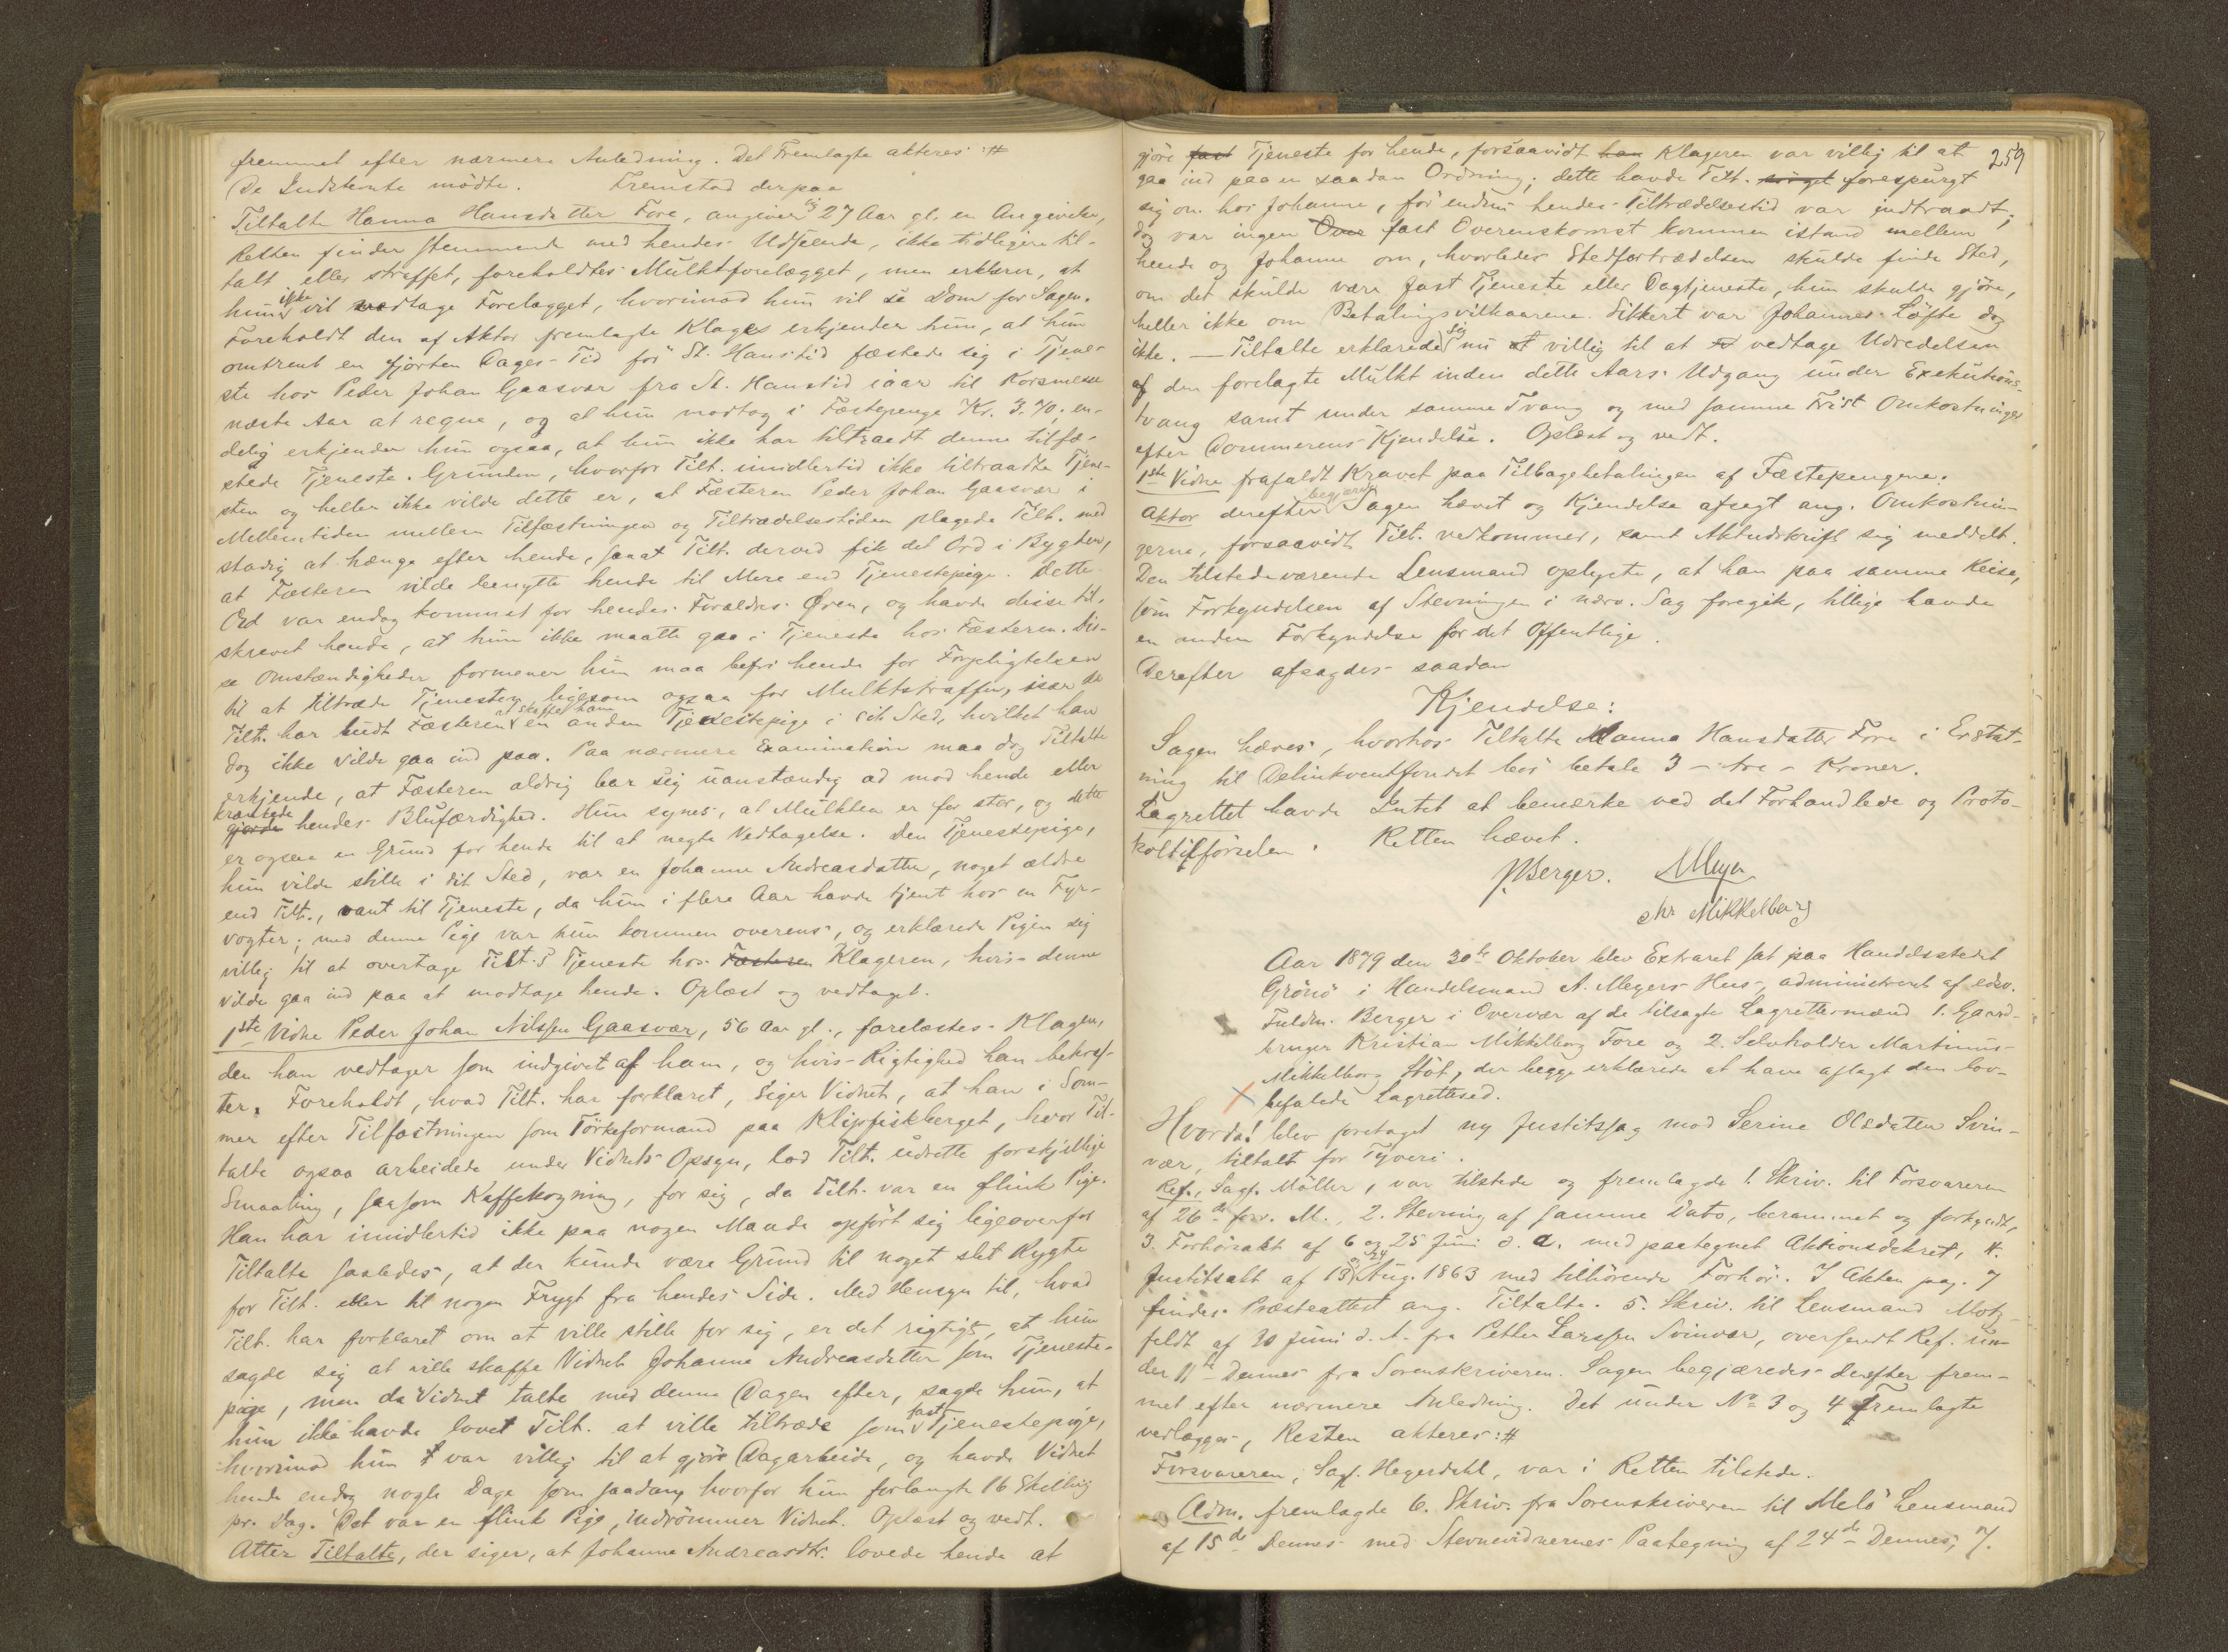 fremmet efter nærmere Anledning. Det Fremlagte akteres :#
De Indstevnte mødte. Fremstod derpaa
Tiltalte Hanna Hansdatter Fore, angiver sig 27 Aar gl. en Angivelse,
Retten finder stemmende med hendes Udseende, ikke tidligere til-
talt eller straffet, foreholdtes Mulktforelægget, men erklærer, at
hun ikke vil vedtage Forelægget, hvorimod hun vil se Dom for Sagen.
Foreholdt den af Aktor fremlagte Klage erkjender hun, at hun
omtrent en fjorten Dages Tid før St. Hanstid fæstede sig i Tjene-
ste hos Peder Johan Gaasvær fra St. Hanstid iaar til Korsmesse
næste Aar at regne, og at hun modtog i Fæstepenge Kr. 3.70; en-
delig erkjender hun ogsaa, at hun ikke har tiltraadt denne tilfæ-
stede Tjeneste. Grunden, hvorfor Tilt. imidlertid ikke tiltraadte Tjene-
sten og heller ikke vilde dette er, at Fæsteren Peder Johan Gaasvær i
Mellemtiden mellem Tilfæstningen og Tiltrædelsestiden plagede Tilt. med
stadig at hænge efter hende, saaat Tilt. derved fik det Ord i Bygden,
at Fæsteren vilde benytte hende til Mere end Tjenestepige. Dette
Ord var endog kommet for hendes Forældres Øren, og havde disse til-
skrevet hende, at hun ikke maatte gaa i Tjeneste hos Fæsteren. Dis-
se Omstændigheder formener hun maa befri hende for Forpligtelsen
til at tiltræde Tjenesten, ligesom ogsaa for Mulktstraffen, især da
Tilt. har budt Fæsteren at skaffe ham en anden Tjenestepige i sit Sted, hvilket han
dog ikke vilde gaa ind paa. Paa nærmere Examination maa dog Tiltalte
erkjende, at Fæsteren aldrig bar sig uanstændig ad mod hende eller
krænkede gjorde hendes Blufærdighed. Hun synes, at Mulkten er for stor, og dette
er ogsaa en Grund for hende til at negte Vedtagelse. Den Tjenestepige,
hun vilde stille i sit Sted, var en Johanne Andreasdatter, noget ældre
end Tilt., vant til Tjeneste, da hun i flere Aar havde tjent hos en Fyr-
vogter; med denne Pige var hun kommen overens, og erklærede Pigen sig
villig til at overtage Tilt.s Tjeneste hos Fæsteren Klageren, hvis denne
vilde gaa ind paa at modtage hende. Oplæst og vedtaget.
1ste Vidne Peder Johan Nilssen Gaasvær, 56 Aar gl., forelæstes Klagen,
den han vedtager som indgivet af ham, og hvis Rigtighed han bekræf-
ter. Foreholdt, hvad Tilt. har forklaret, siger Vidnet, at han i Som-
mer efter Tilfæstningen som Tørkeformand paa Klipfiskberget, hvor Til-
talte ogsaa arbeidede under Vidnets Opsyn, lod Tilt. udrette forskjellige
Smaating, saasom Kaffekogning, for sig, da Tilt. var en flink Pige.
Han har imidlertid ikke paa nogen Maade opført sig ligeoverfor
Tiltalte saaledes, at der kunde være Grund til noget slet Rygte
for Tilt. eller til nogen Frygt fra hendes Side. Med Hensyn til, hvad
Tilt. har forklaret om at ville stille for sig, er det rigtigt, at hun
sagde sig at ville skaffe Vidnet Johanne Andreasdatter som Tjeneste-
pige, men da Vidnet talte med denne Dagen efter, sagde hun, at
hun ikke havde lovet Tilt. at ville tiltræde som fast Tjenestepige,
hvorimod hun var villig til at gjøre Dagarbeide, og havde Vidnet
hende endog nogle Dage som saadan, hvorfor hun forlangte 16 Skilling
pr. Dag. Det var en flink Pige, indrømmer Vidnet. Oplæst og vedt.
Atter Tiltalte, der siger, at Johanne Andreasdtr. lovede hende at
259
gjøre fast Tjeneste for hende, forsaavidt han Klageren var villig til at
gaa ind paa en saadan Ordning; dette havde Tilt. sørget forespurgt
sig om hos Johanne, før endnu hendes Tiltrædelsestid var indtraadt;
dog var ingen Over fast Overenskomst kommen istand mellem
hende og Johanne om, hvorledes Stedfortrædelsen skulde finde Sted,
om det skulde være fast Tjeneste eller Dagtjeneste, hun skulde gjøre,
heller ikke om Betalingsvilkaarene. Sikkert var Johannes Løfte dog
ikke. — Tiltalte erklærede sig nu at villig til at vedtage Udredelsen
af den forelagte Mulkt inden dette Aars Udgang under Exekutions-
tvang samt under samme Tvang og med samme Frist Omkostninger
efter Dommerens Kjendelse. Oplæst og vedt.
1ste Vidne frafaldt Kravet paa Tilbagebetalingen af Fæstepengene.
Aktor derefter begjærede Sagen hævet og Kjendelse afsagt ang. Omkostnin-
gerne, forsaavidt Tilt. vedkommer, samt Aktudskrift sig meddelt.
Den tilstedeværende Lensmand oplyste, at han paa samme Reise,
som Forkyndelsen af Stevningen i nærv. Sag foregik, tillige havde
en anden Forkyndelse for det Offentlige.
Derefter afsagdes saadan
Kjendelse:
Sagen hæves, hvorhos Tiltalte Hanna Hansdatter Fore i Erstat-
ning til Delinkventfondet bør betale 3 – tre – Kroner.
Lagrettet havde Intet at bemærke ved det Forhandlede og Proto-
koltilførselen. Retten hævet.
P. Berger. A Meyer
Chr Mikkelborg
Aar 1879 den 30te Oktober blev Extraret sat paa Handelsstedet
Grønø i Handelsmand A. Meyers Hus, administreret af edsv.
Fuldm. Berger i Overvær af de tilsagte Lagrettesmænd 1. Gaard-
bruger Kristian Mikkelborg Fore og 2. Selveholder Martinus
Mikkelborg Støt, der begge erklærede at have aflagt den lov-
befalede Lagrettesed.
Hvorda! blev foretaget ny Justitssag mod Serine Olsdatter Svin-
vær, tiltalt for Tyveri.
Ref., Sagf. Møller, var tilstede og fremlagde 1. Skriv. til Forsvareren
af 26de forr. M., 2. Stevning af samme Dato, berammet og forkyndt,
3. Forhørsakt af 6 og 25 Juni d. A. med paategnet Aktionsdekret, 4.
Justitsakt af 13 & 24 Aug. 1863 med tilhørende Forhør. I Akten pag. 7
findes Præsteattest ang. Tiltalte. 5. Skriv. til Lensmand Motz-
feldt af 30 Juni d. A. fra Petter Larssen Svinvær, oversendt Ref. un-
der 11te Dennes fra Sorenskriveren. Sagen begjæredes derefter frem-
met efter nærmere Anledning. Det under No 3 og 4 Fremlagte
vedlægges, Resten akteres :#
Forsvareren, Sagf. Hegerdahl, var i Retten tilstede.
Adm. fremlagde 6. Skriv. fra Sorenskriveren til Melø Lensmand
af 15de Dennes med Stevnevidnernes Paategning af 24de Dennes, 7.